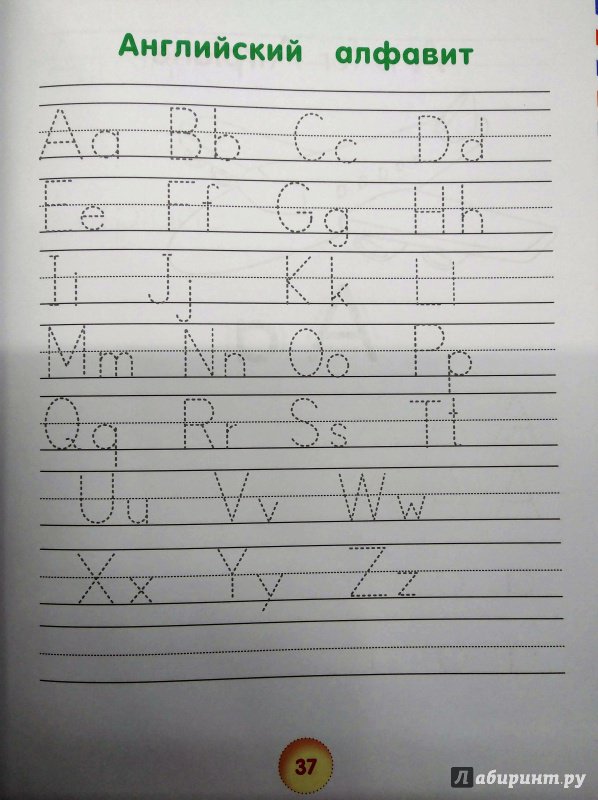 Английский алфавит
Aa Bb Cc Dd
Ee Ff Gg Hh
Ii Jj Kk Ll
Mm Nn Oo Pp
Qq Rr Ss Tt
Uu Vv Ww
Xx Yy Zz
37
Лабиринт.ру